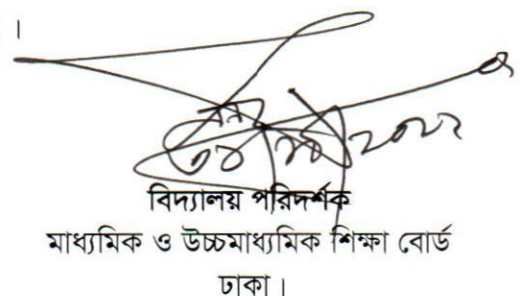 ।
বিদ্যালয় পরিদর্শক
মাধ্যমিক ও উচ্চমাধ্যমিক শিক্ষা বোর্ড
ঢাকা।